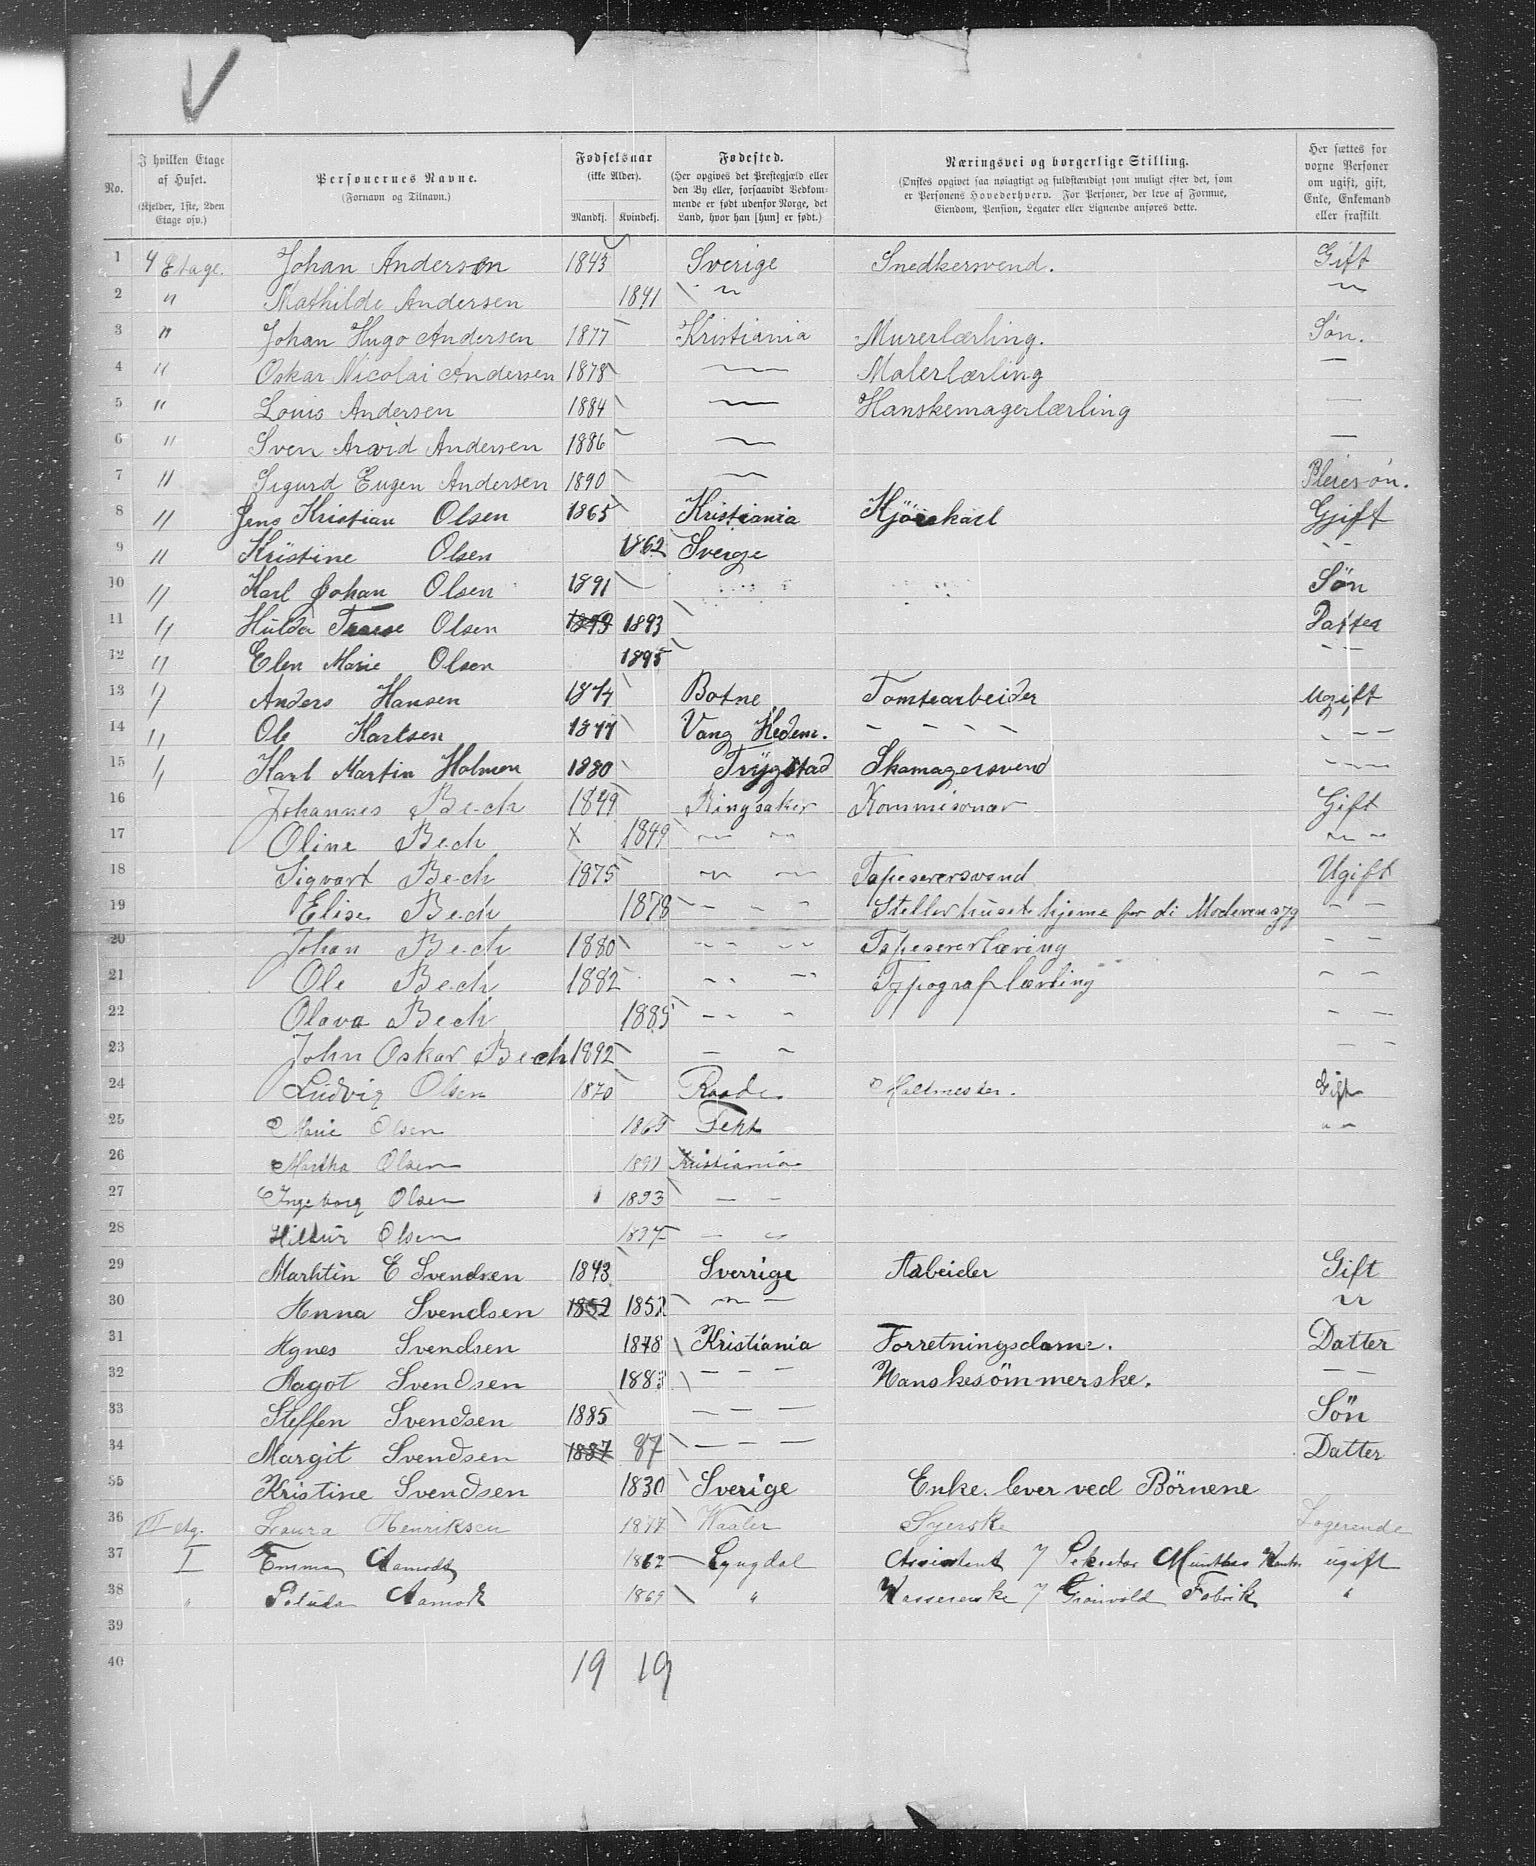 No. | I hvilken Etage af Huset. (Kjelder, 1ste, 2den Etage osv.) | Personernes Navne. (Fornavn og Tilnavn.) | Fødselsaar (ikke Alder). Mandkj. Kvindekj. | Fødested. (Her opgives det Prestegjæld eller den By eller, forsaavidt Vedkommende er født udenfor Norge, det Land, hvor han [hun] er født.) | Næringsvei og borgerlige Stilling. (Ønskes opgivet saa nøiagtigt og fuldstændigt som muligt efter det, som er Personens Hovederhverv. For Personer, der leve af Formue, Eiendom, Pension, Legater eller Lignende anføres dette. | Her sættes for voxne Personer om ugift, gift, Enke, Enkemand eller fraskilt
1 4 Etage. Johan Andersen 1843 Sverige Snedkersvend. Gift
2 " Mathilde Andersen 1841 " "
3 " Johan Hugo Andersen 1877 Kristiania Murerlærling. Søn.
4 " Oskar Nicolai Andersen 1878 — Malerlærling —
5 " Louis Andersen 1884 — Hanskemagerlærling —
6 " Sven Arvid Andersen 1886 — —
7 " Sigurd Eugen Andersen 1890 — Pleiesøn.
8 " Jens Kristian Olsen 1865 Kristiania Kjørekarl Gjift
9 " Kristine Olsen 1862 Sverge - -
10 " Karl Johan Olsen 1891 Søn
11 " Hulda Olsen 1893 1893 Datter
12 " Elen Marie Olsen 1895 - -
13 " Anders Hansen 1874 Botne Tomtearbeider Ugift
14 " Ole Karlsen 1877 Vang Hedem. - - - - - - -
15 " Karl Martin Holmen 1880 Trygstad Skomagersvend - - -
16 Johannes Bech 1849 Ringsaker Kommisonær Gift
17 Oline Bech X 1849 " " " "
18 Sigvart Bech 1875 " " Tapeserersvend Ugift
19 Elise Bech 1878 - - - Steller huset hjeme for di Moderen syg - -
20 Johan Bech 1880 - - Tapesererlæring - -
21 Ole Bech 1882 - - Typograflærling - -
22 Olava Bech 1885 - - - - -
23 John Oskar Bech 1892 - - - -
24 Ludvig Olsen 1870 Raade Maltmester. Gift
25 Marie Olsen 1865 Tekt " "
26 Martha Olsen 1891 Kristiania
27 Ingeborg Olsen 1893 - -
28 Olsen 1897 - -
29 Marktin E Svendsen 1843 Sverrige Arbeider Gift
30 Anna Svendsen 1852 1852 " - "
31 Agnes Svendsen 1878 Kristiania Forretningsdame. Datter
32 Aagot Svendsen 1883 - - - Hanskesömmerske. —
33 Steffen Svendsen 1885 - - - Sön
34 Margit Svendsen 1887 87 - - - Datter
35 Kristine Svendsen 1830 Sverige Enke. lever ved Börnene
36 etg. Laura Henriksen 1877 Vaaler Syerske Logerende
37 I Emma Aamodt 1867 Lyngdal Assistent / Sekretær Munthes Kontor ugift
38 " Aamodt 1869 " / Grønvold Fabrik "
39
40
19 19